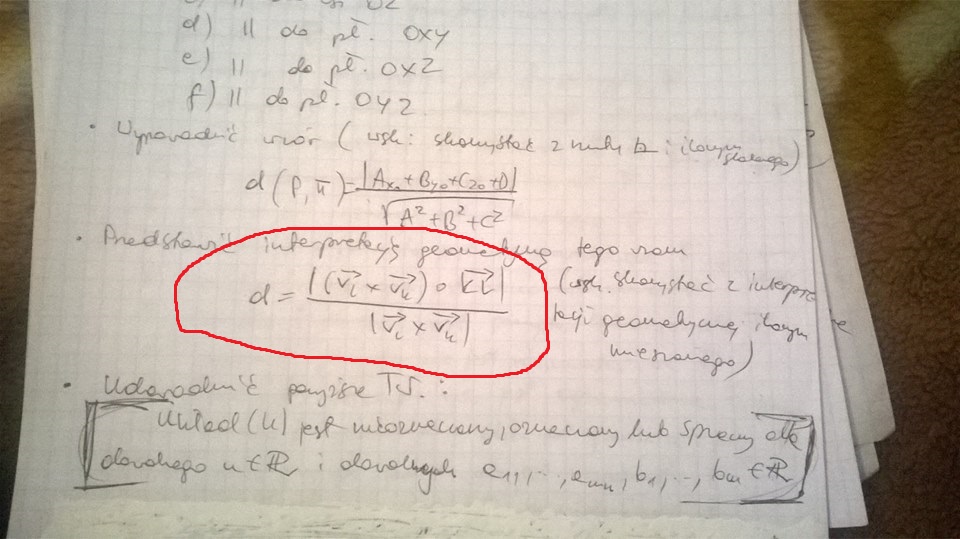 d) || do pł. OXY
e) || do pł. OXZ
f) || do pł. OYZ
• Wyprowadzić wzór (wsk: skorzystać z i iloczynu skalarnego)
d(P, π) = |Ax₀ + By₀ + Cz₀ + D| / √(A² + B² + C²)
• Przedstawić interpretację geometryczną tego wzoru
d = |(v⃗ₗ × v⃗ₖ) ∘ K⃗L⃗| / |v⃗ₗ × v⃗ₖ|
(wsk. skorzystać z interpretacji geometrycznej iloczynu mieszanego)
• Udowodnić powyższe TW. :
Układ (U) jest nieoznaczony, oznaczony lub sprzeczny dla
dowolnego n ∈ ℝ i dowolnych b₁, ..., bₘ ∈ ℝ